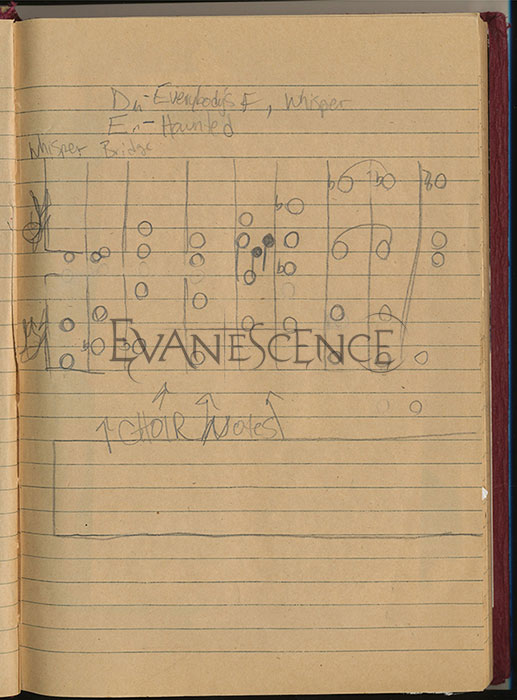 Dm-Everybody's F, Whisper
Em-Haunted
Whisper Bridge
EVANESCENCE
CHOIR Notes